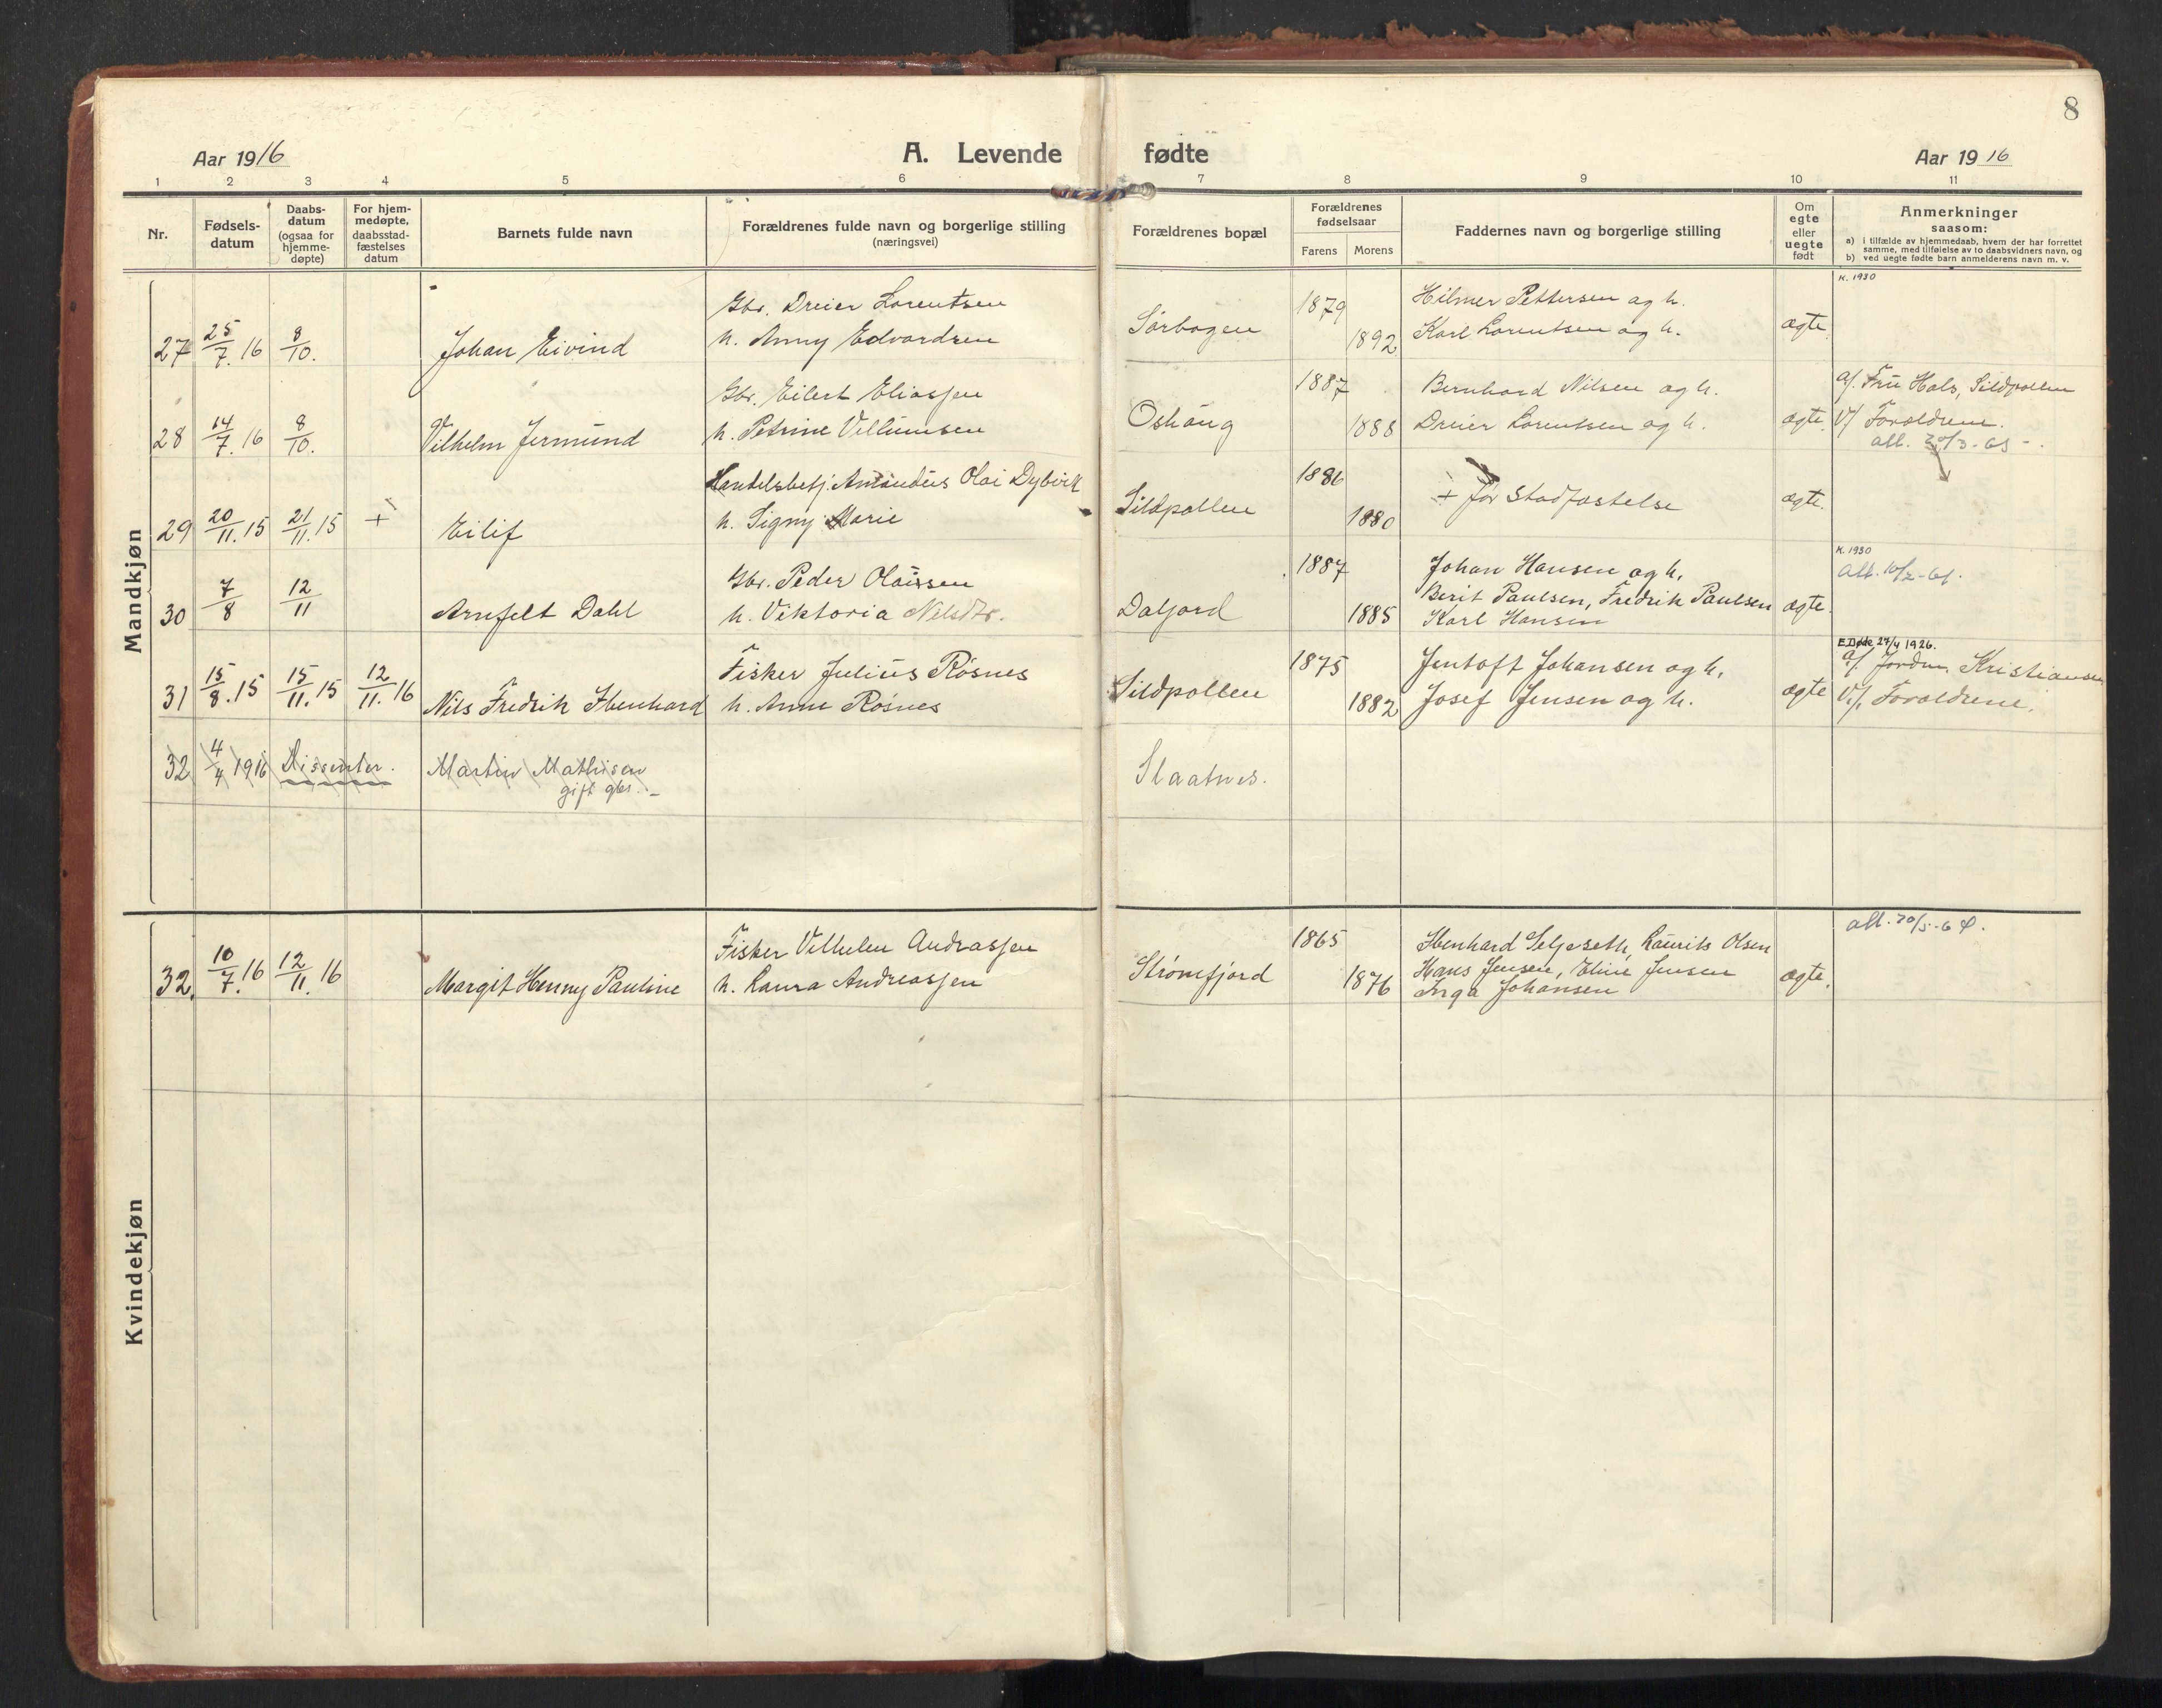 8
Aar 1916
A. Levende fødte
Aar 1916
1 2 3 4 5 6 7 8 9 10 11
Nr.
Fødsels-
datum
Daabs-
datum
(ogsaa for
hjemme-
døpte)
For hjem-
medøpte,
daabsstad-
fæstelses
datum
Barnets fulde navn
Forældrenes fulde navn og borgerlige stilling
(næringsvei)
Forældrenes bopæl
Forældrenes
fødselsaar
Farens
Morens
Faddernes navn og borgerlige stilling
Om
egte
eller
uegte
født
Anmerkninger
saasom:
a) i tilfælde av hjemmedaab, hvem der har forrettet
samme, med tilføielse av to daabsvidners navn, og
b) ved uegte fødte barn anmelderens navn m. v.
Mandkjøn
27 25/7.16 8/10. Johan Eivind
Gbr. Dreier Lorentsen
h. Anny Edvardsen
Sørbogen
1879
1892
Hilmer Pettersen og h.
Karl Lorentsen og h.
ægte
K. 1930
28 14/7.16 8/10. Vilhelm Jermund
Gbr. Eilert Eliassen
h. Petrine Vellumsen
Oshaug
1887
1888
Bernhard Nilsen og h.
Dreier Lorentsen og h.
ægte.
a/. Fru Hals, Sildpollen
V/ Forældrene.
att. 30/3-65-.
29 20/11.15 21/11.15 + Eilif
Handelsbetj. Amandus Olai Dybvik
h. Signy Marie
Sildpollen
1886
1880
+ før Stadfæstelse
ægte.
30 7/8 12/11 Arnfelt Dahl
Gbr. Peder Olaissen
h. Viktoria Nilsdtr.
Dalfjord
1887
1885
Johan Hansen og h.
Berit Paulsen, Fredrik Paulsen
Karl Hansen
ægte.
K. 1930
att. 10/2-61.
31 15/8.15 15/11.15 12/11.16 Nils Fredrik Ibenhard
Fisker Julius Røsnes
h. Anne Røsnes
Sildpollen
1875
1882
Jentoft Johansen og h.
Josef Jensen og h.
ægte
Døde 24/4 1926.
a/. Jordm. Kristiansen
V./. Forældrene.
32 4/4 1916 Dissenter. Martin Mathisen
gift gbr. -
Slaatnes.
Kvindekjøn
32. 10/7.16 12/11.16 Margit Henny Pauline
Fisker Vilhelm Andrassen
h. Laura Andreassen
Strømfjord
1865
1876
Ibenhard Seljeseth, Laurits Olsen
Hans Jensen, Eline Jensen
Inga Johansen
ægte.